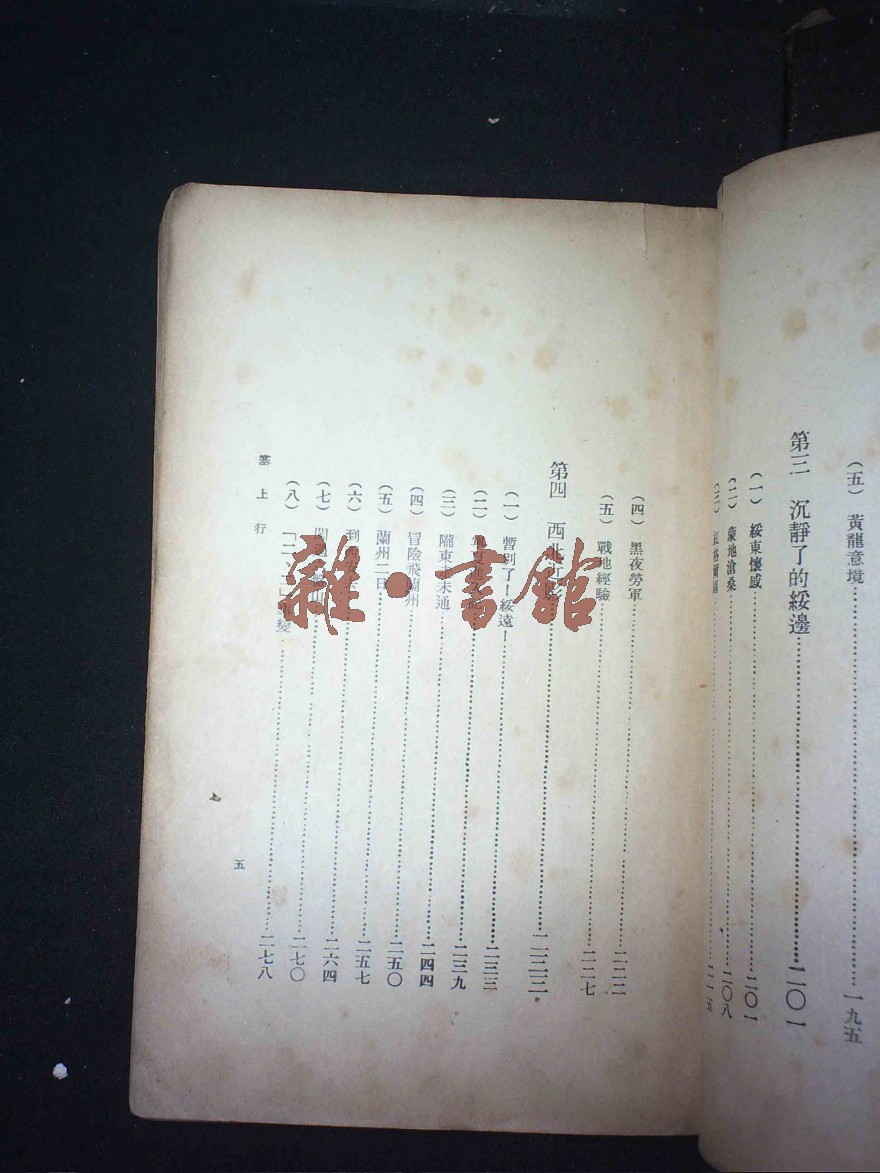 （五） 黃龍意境……一九五
第三 沉靜了的綏邊……二〇一
（一） 綏東懷感……二〇一
（二） 蒙地滄桑……二〇八
（三） 紅格爾圖……二一五
（四） 黑夜勞軍……二二二
（五） 戰地經驗……二二七
第四 西北……二三三
（一） 暫別了！綏遠！……二三三
（二） ……二三九
（三） 隴東未通……二四四
（四） 冒險飛蘭州……二五〇
（五） 蘭州二日……二五七
（六） 到……二六四
（七） 山……二七〇
（八） 變……二七八
塞上行
五
雜·書館